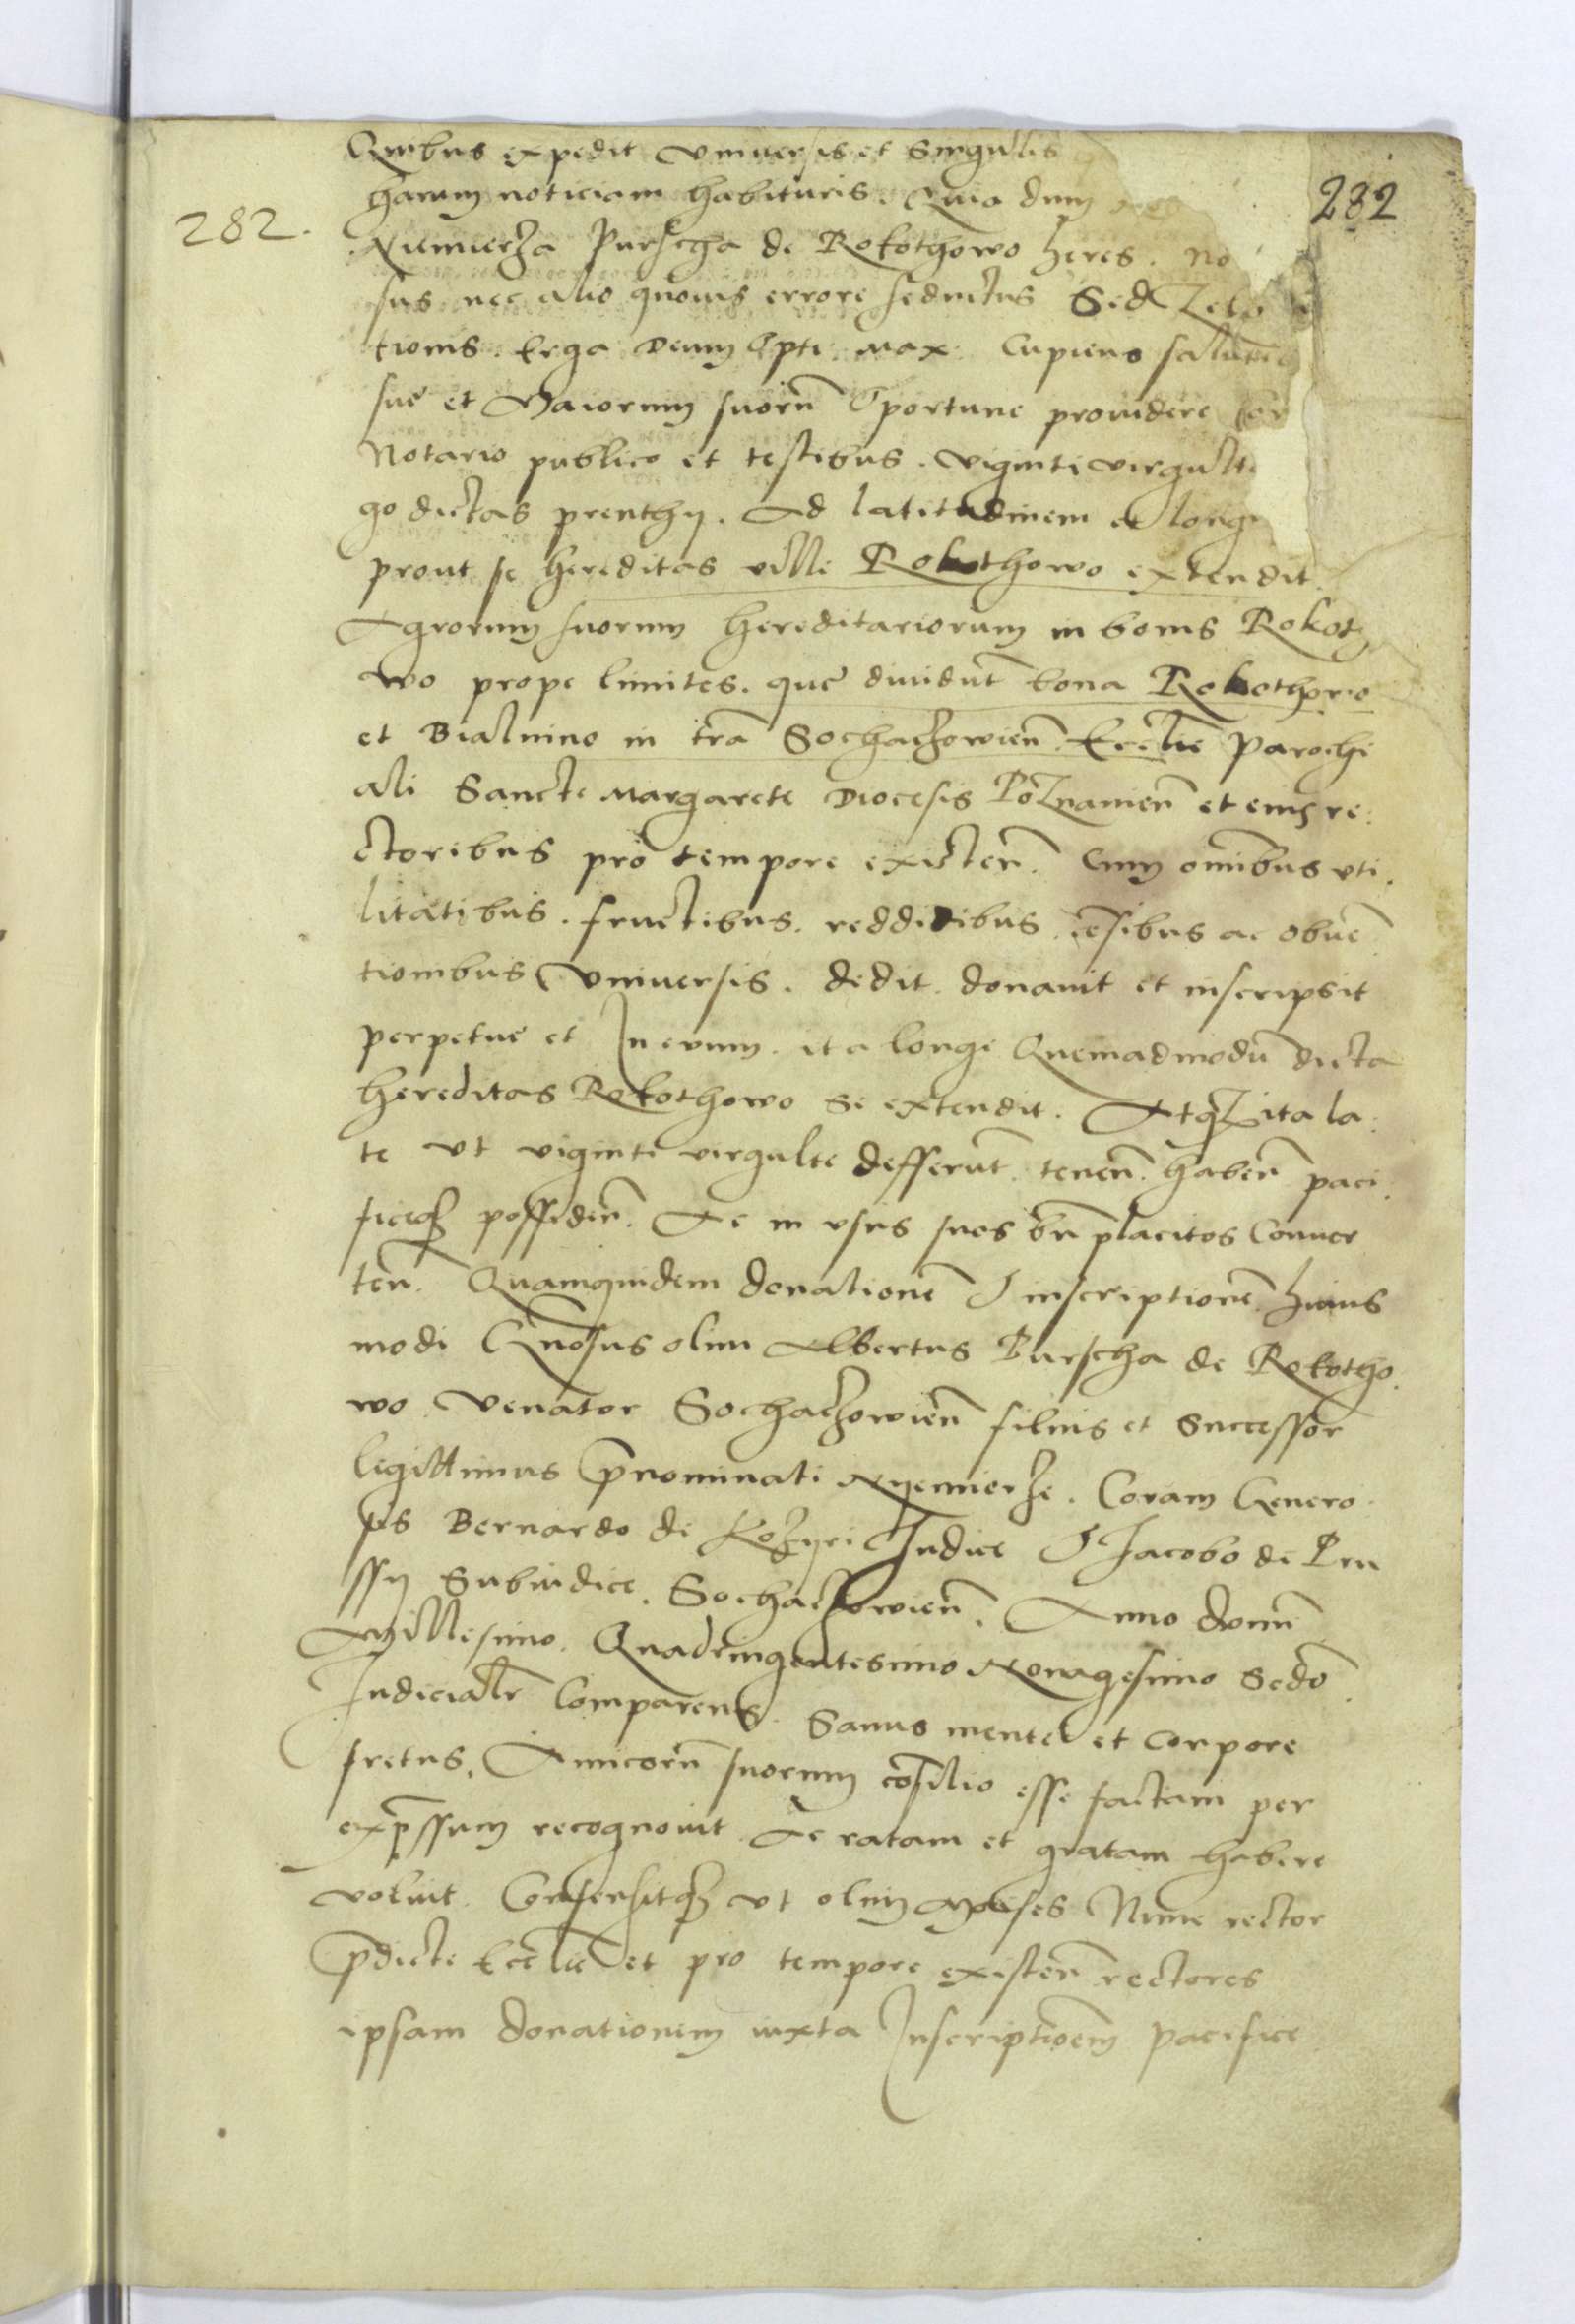 Quibus expedit Vniuersis et Singulis
harum noticiam habituris. Quia dum
282.
282
Niemierza Purscha de Rokothowo heres. no
sus nec alio quouis errore seductus Sed Zelo
tionis. Erga Deum Opti. Max. Cupiens saluti
sue et Maiorum suorū Oportune prouidere Cor
Notario publico et testibus. viginti virgult
go dictas prenthy. Ad latitudinem et longi
prout se hereditas ville Rokothowo extendit.
Agrorum suorum Hereditariorum in bonis Rokot
wo prope limites. que diuidūt bona Rokothowo
et Bialnino in tr̄a Sochaczowien̄. Eccl̄ie Parochi
ali Sancte Margarete Diocesis Poznanien̄ et eius re
ctoribus pro tempore existen̄. Cum om̄ibus vti.
litatibus. fructibus. redditibus. cēsibus ac obuē
tionibus Vniuersis. dedit. donauit et inscripsit
perpetue et In evum. ita longe Quemadmodū dicta
Hereditas Rokothowo se extendit. Atqz ita la.
te vt viginti virgulte defferūt. tenen̄. haben̄ paci.
ficeqz possiden̄. Ac in vsus suos bn̄placitos Conuer
ten̄. Quamquidem donationē & inscriptionē huius
modi Gn̄osus olim Albertus Purscha de Rokotho.
wo Venator Sochaczowien̄ filius et Successor
legittimus p̄nominati Nyemierze. Coram Genero.
sis Bernardo de Kozyri Judice & Jacobo de Pru
ssy Subiudice. Sochaczowien̄. Anno domī
Millesimo. Quadringentesimo Nonagesimo Sedō.
Judicialr̄ Comparens. Sanus mente et Corpore
fretus. Amicorū suorum cōsilio esse factam per
exp̄ssum recognouit Ac ratam et gratam habere
voluit. Consensitqz vt olim Moises Nunc rector
p̄dicte Eccl̄ie et pro tempore existen̄ rectores
ipsam donationem iuxta Inscriptioēm pacifice